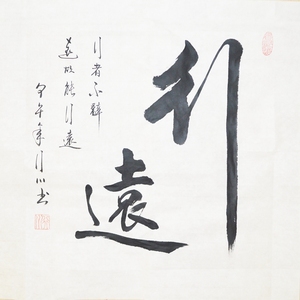 行遠
行者不辭
遠故能行遠
甲午年書